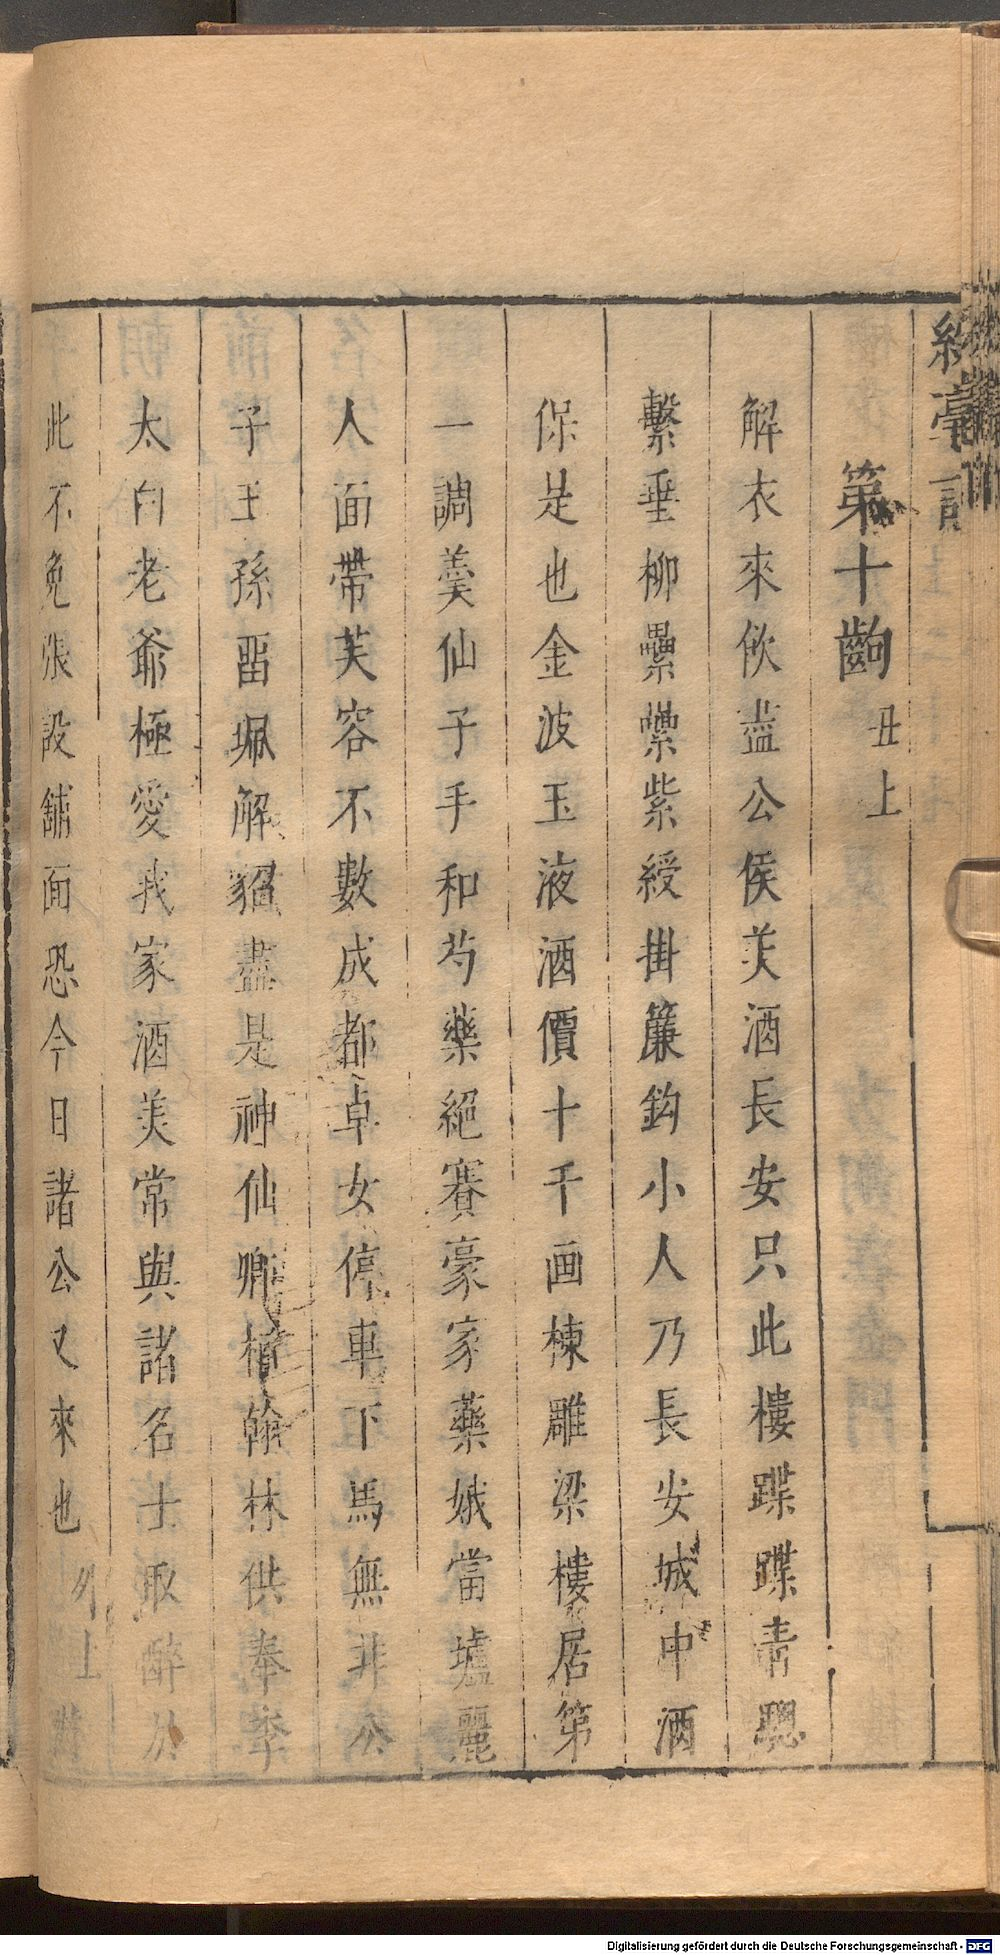 綵毫記
第十齣 丑上
解衣來飲盡公侯美酒長安只此樓蹀蹀青驄
繫垂柳纍纍紫綬掛簾鈎小人乃長安城中酒
保是也金波玉液酒價十千画棟雕梁樓居第
一調羹仙子手和芍藥絕賽豪家藥娥當壚麗
人面帶芙容不數成都卓女停車下馬無非公
子王孫畱珮解貂盡是神仙卿相翰林供奉李
太白老爺極愛我家酒美常與諸名士取醉於
此不免張設舖面恐今日諸公又來也 外上
Digitalisierung gefördert durch die Deutsche Forschungsgemeinschaft - DFG